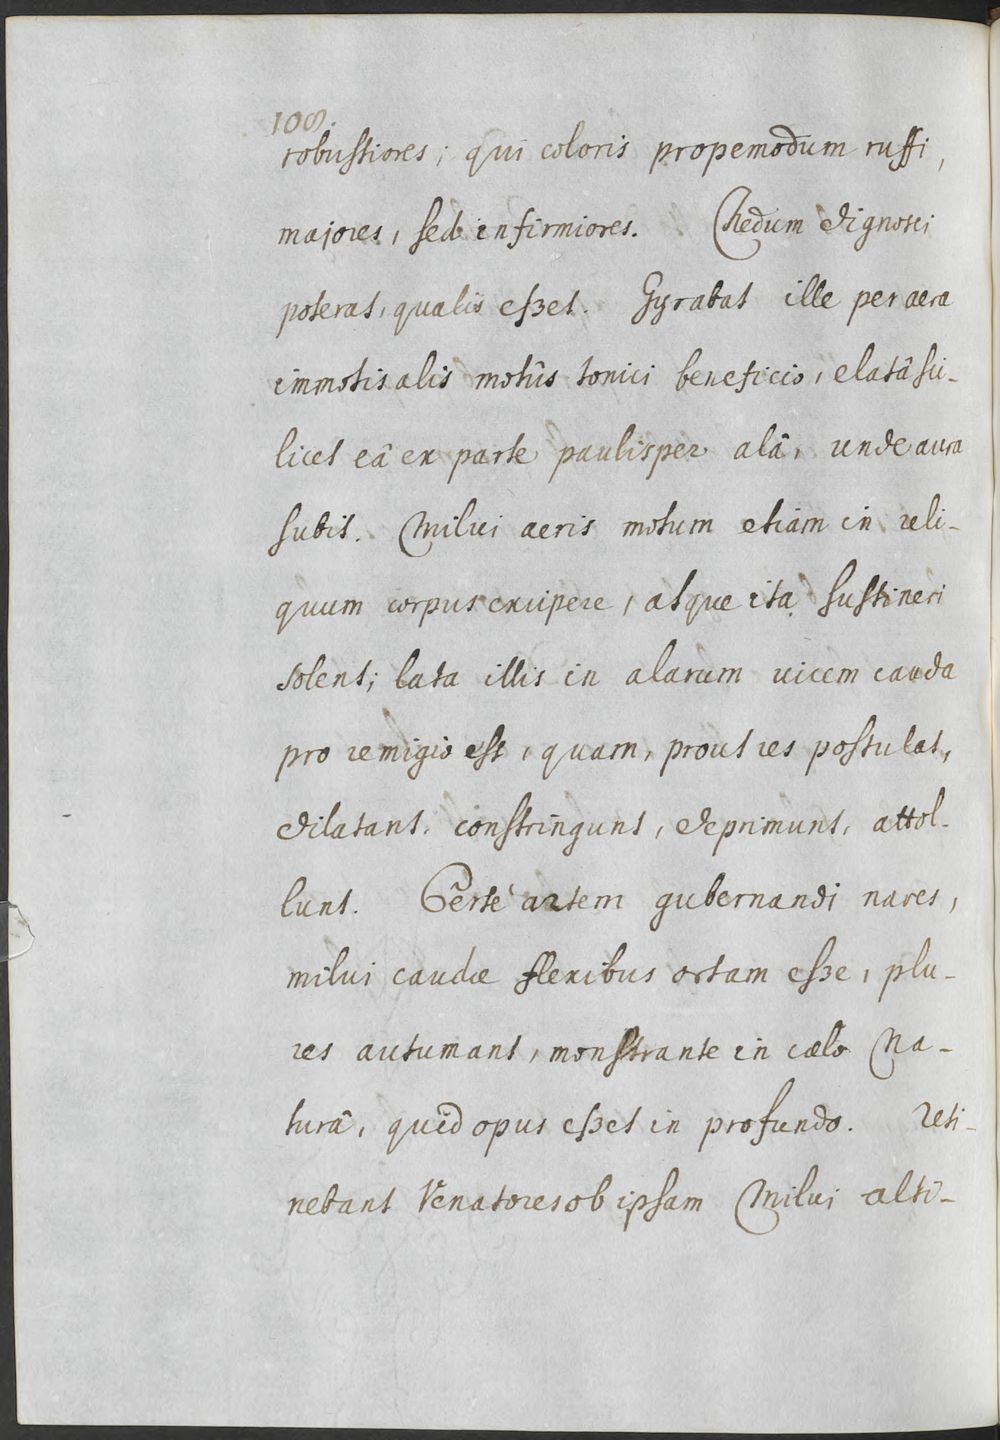 108.
robustiores; qui coloris propemodum ruffi,
majores, sed infirmiores. Nedum dignosci
poterat, qualis esset. Gyrabat ille per aera
immotis alis motûs tonici beneficio, elatâ sci-
licet eâ ex parte paulisper alâ, unde aura
subit. Milui aeris motum etiam in reli-
quum corpus excipere, atque ita sustineri
solent; lata illis in alarum uicem cauda
pro remigio est, quam, prout res postulat,
dilatant, constringunt, deprimunt, attol-
lunt. Certè artem gubernandi naves,
milui caudæ flexibus ortam esse, plu-
res autumant, monstrante in cælo Na-
turâ, quid opus esset in profundo. Reti-
nebant Venatores ob ipsam Milui alti-